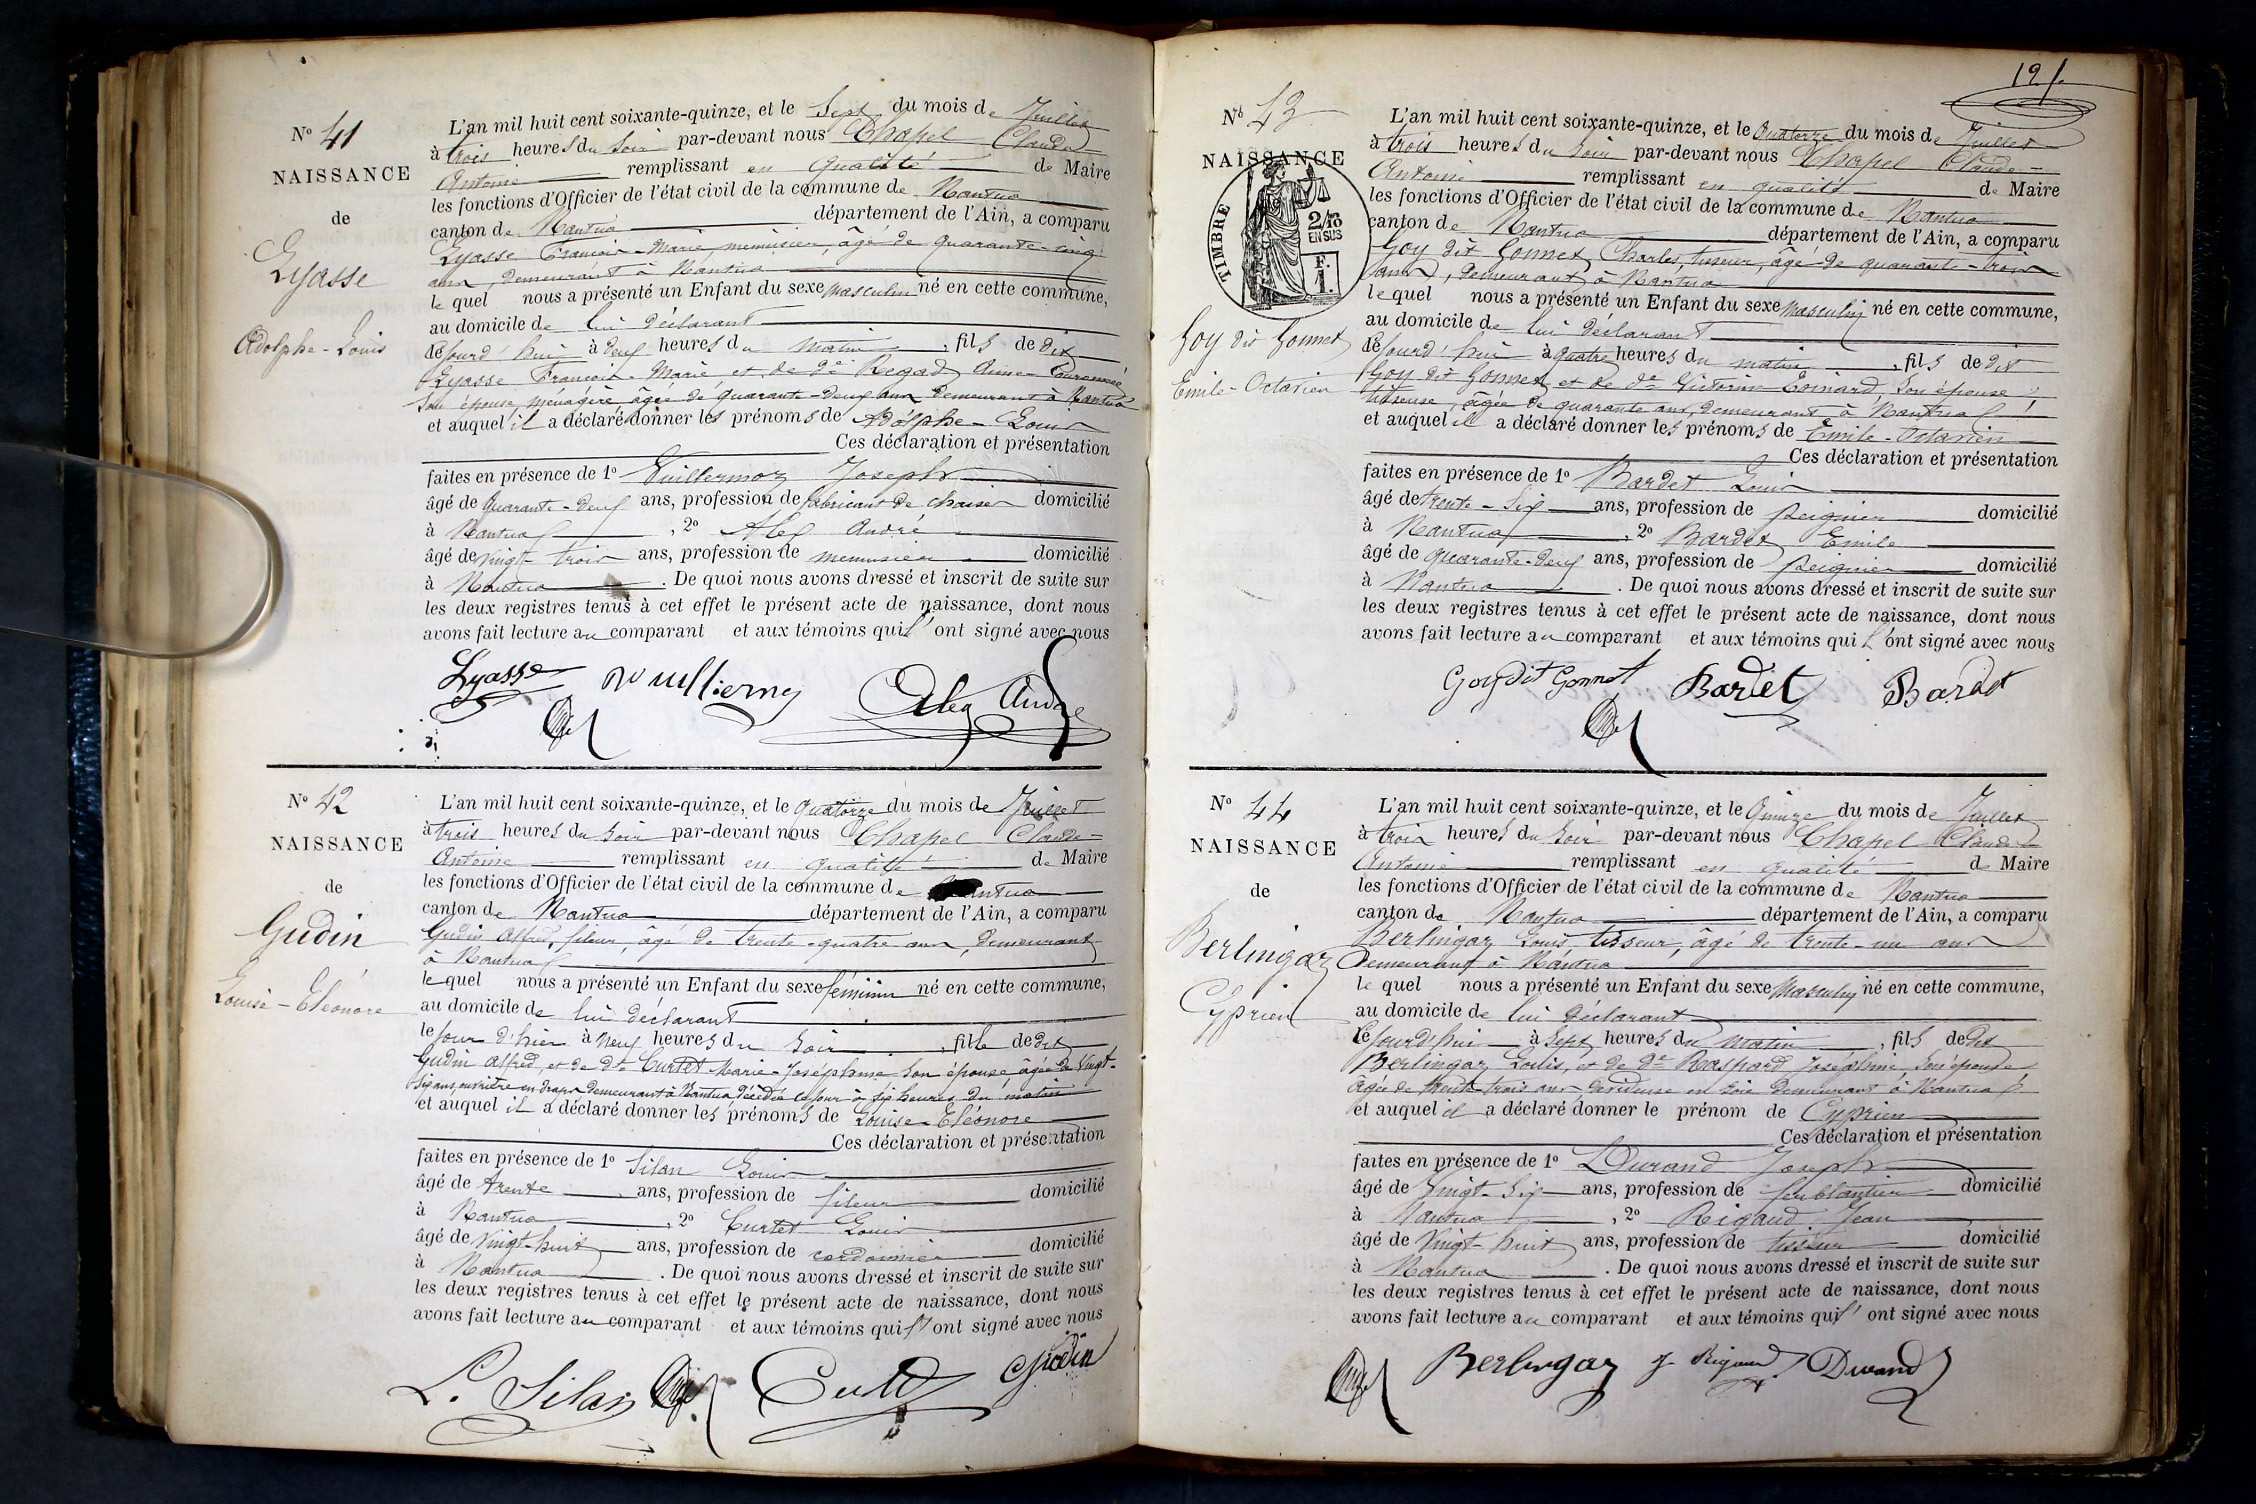 N° 41
NAISSANCE
de
Lyasse
Adolphe-Louis
L'an mil huit cent soixante-quinze, et le Sept du mois de Juillet
à trois heures du soir par-devant nous Chapel Claude
Antoine remplissant en qualité de Maire
les fonctions d'Officier de l'état civil de la commune de Nantua
canton de Nantua département de l'Ain, a comparu
Lyasse François-Marie, menuisier, âgé de quarante-cinq
ans, demeurant à Nantua
le quel nous a présenté un Enfant du sexe masculin né en cette commune,
au domicile de lui déclarant
cejourd'hui à deux heures du matin, fils de dit
Lyasse François-Marie et de de Regad Aimé-Couronnée
son épouse ménagère âgée de quarante-deux ans demeurant à Nantua
et auquel il a déclaré donner les prénoms de Adolphe-Louis
Ces déclaration et présentation
faites en présence de 1° Vuillermoz Joseph
âgé de quarante-deux ans, profession de fabricant de chaises domicilié
à Nantua, 2° Alex André
âgé de vingt-trois ans, profession de menuisier domicilié
à Nantua. De quoi nous avons dressé et inscrit de suite sur
les deux registres tenus à cet effet le présent acte de naissance, dont nous
avons fait lecture au comparant et aux témoins qui l'ont signé avec nous
Lyasse Alex André
N° 42
NAISSANCE
de
Gudin
Louise-Eléonore
L'an mil huit cent soixante-quinze, et le quatorze du mois de Juillet
à trois heures du soir par-devant nous Chapel Claude-
Antoine remplissant en qualité de Maire
les fonctions d'Officier de l'état civil de la commune de Nantua
canton de Nantua département de l'Ain, a comparu
Gudin Alfred, fileur, âgé de trente-quatre ans, demeurant
à Nantua
le quel nous a présenté un Enfant du sexe féminin né en cette commune,
au domicile de lui déclarant
le jour d'hier à neuf heures du soir, fille de dit
Gudin Alfred, et de de Curtet Marie-Joséphine son épouse, âgée de vingt-
six ans, ouvrière en draps, demeurant à Nantua, décédée ce jour à six heures du matin
et auquel il a déclaré donner les prénoms de Louise-Eléonore
Ces déclaration et présentation
faites en présence de 1° Silan Louis
âgé de trente ans, profession de fileur domicilié
à Nantua, 2° Curtet Louis
âgé de vingt-huit ans, profession de cordonnier domicilié
à Nantua. De quoi nous avons dressé et inscrit de suite sur
les deux registres tenus à cet effet le présent acte de naissance, dont nous
avons fait lecture au comparant et aux témoins qui l'ont signé avec nous
L. Silan Gudin
N° 43
NAISSANCE
TIMBRE
2/10
EN SUS
F.
1.
Goy dit Gonnet
Emile-Octavien
L'an mil huit cent soixante-quinze, et le quatorze du mois de Juillet
à trois heures du soir par-devant nous Chapel Claude-
Antoine remplissant en qualité de Maire
les fonctions d'Officier de l'état civil de la commune de Nantua
canton de Nantua département de l'Ain, a comparu
Goy dit Gonnet Charles, tisseur, âgé de quarante-trois
ans, demeurant à Nantua
le quel nous a présenté un Enfant du sexe masculin né en cette commune,
au domicile de lui déclarant
cejourd'hui à quatre heures du matin, fils de dit
Goy dit Gonnet et de de Victorine Coinard, son épouse,
tisseuse, âgée de quarante ans, demeurant à Nantua
et auquel il a déclaré donner les prénoms de Emile-Octavien
Ces déclaration et présentation
faites en présence de 1° Bardet Louis
âgé de trente-six ans, profession de peignier domicilié
à Nantua, 2° Bardet Emile
âgé de quarante-deux ans, profession de peignier domicilié
à Nantua. De quoi nous avons dressé et inscrit de suite sur
les deux registres tenus à cet effet le présent acte de naissance, dont nous
avons fait lecture au comparant et aux témoins qui l'ont signé avec nous
Goy dit Gonnet Bardet Bardet
N° 44
NAISSANCE
de
Berlingaz
Cyprien
L'an mil huit cent soixante-quinze, et le quinze du mois de Juillet
à trois heures du soir par-devant nous Chapel Claude
Antoine remplissant en qualité de Maire
les fonctions d'Officier de l'état civil de la commune de Nantua
canton de Nantua département de l'Ain, a comparu
Berlingaz Louis, tisseur, âgé de trente-un ans
demeurant à Nantua
le quel nous a présenté un Enfant du sexe masculin né en cette commune,
au domicile de lui déclarant
cejourd'hui à sept heures du matin, fils de dit
Berlingaz Louis, et de de Raspard Joséphine son épouse,
âgée de trente-trois ans, en soie demeurant à Nantua
et auquel il a déclaré donner le prénom de Cyprien
Ces déclaration et présentation
faites en présence de 1° Durand Joseph
âgé de vingt-six ans, profession de ferblantier domicilié
à Nantua, 2° Rigaud Jean
âgé de vingt-huit ans, profession de tisseur domicilié
à Nantua. De quoi nous avons dressé et inscrit de suite sur
les deux registres tenus à cet effet le présent acte de naissance, dont nous
avons fait lecture au comparant et aux témoins qui l'ont signé avec nous
Berlingaz J. Rigaud Durand